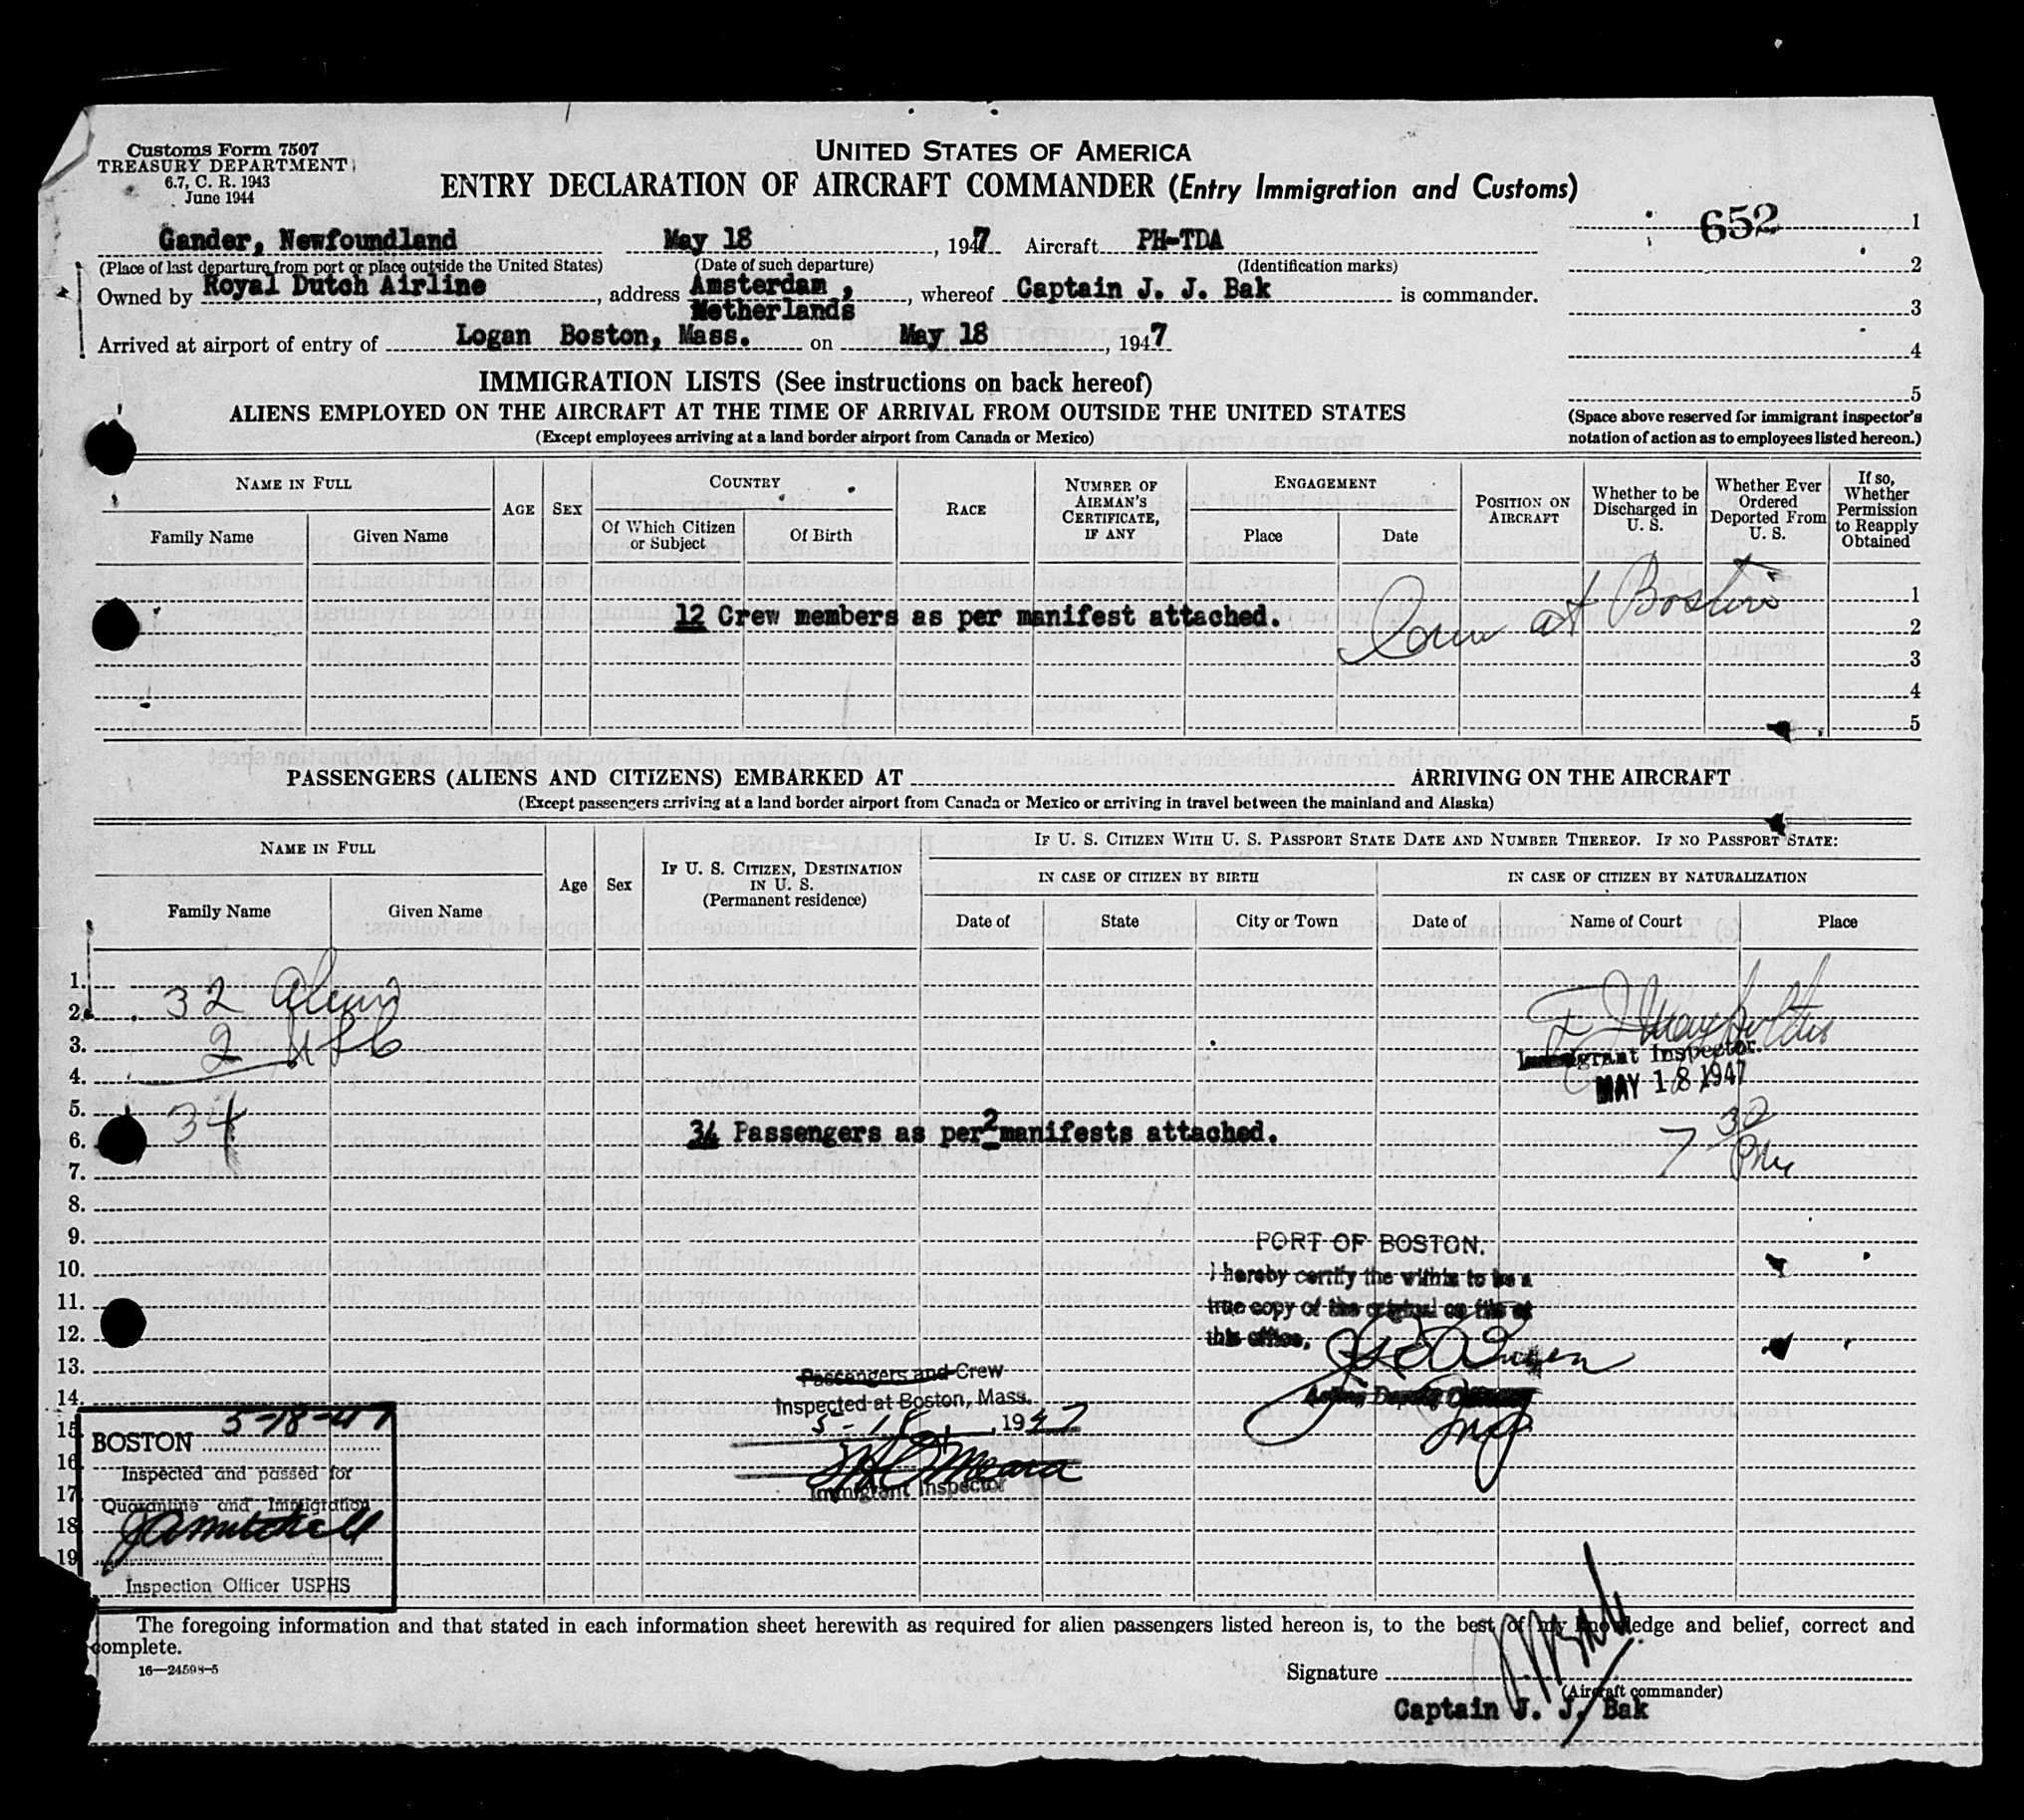 Customs Form 7507
TREASURY DEPARTMENT
6.7, C. R. 1943
June 1944
UNITED STATES OF AMERICA
ENTRY DECLARATION OF AIRCRAFT COMMANDER (Entry Immigration and Customs)
652
1
2
3
4
5
Gander, Newfoundland May 18, 1947 Aircraft PH-TDA
(Place of last departure from port or place outside the United States) (Date of such departure) (Identification marks)
Owned by Royal Dutch Airline, address Amsterdam, Netherlands, whereof Captain J. J. Bak is commander.
Arrived at airport of entry of Logan Boston, Mass. on May 18, 1947
(Space above reserved for immigrant inspector's
notation of action as to employees listed hereon.)
IMMIGRATION LISTS (See instructions on back hereof)
ALIENS EMPLOYED ON THE AIRCRAFT AT THE TIME OF ARRIVAL FROM OUTSIDE THE UNITED STATES
(Except employees arriving at a land border airport from Canada or Mexico)
NAME IN FULL
Family Name
Given Name
AGE
SEX
COUNTRY
Of Which Citizen
or Subject
Of Birth
RACE
NUMBER OF
AIRMAN'S
CERTIFICATE,
IF ANY
ENGAGEMENT
Place
Date
POSITION ON
AIRCRAFT
Whether to be
Discharged in
U. S.
Whether Ever
Ordered
Deported From
U. S.
If so,
Whether
Permission
to Reapply
Obtained
12 Crew members as per manifest attached.
at Boston
1
2
3
4
5
PASSENGERS (ALIENS AND CITIZENS) EMBARKED AT ARRIVING ON THE AIRCRAFT
(Except passengers arriving at a land border airport from Canada or Mexico or arriving in travel between the mainland and Alaska)
NAME IN FULL
Family Name
Given Name
Age
Sex
IF U. S. CITIZEN, DESTINATION
IN U. S.
(Permanent residence)
IF U. S. CITIZEN WITH U. S. PASSPORT STATE DATE AND NUMBER THEREOF. IF NO PASSPORT STATE:
IN CASE OF CITIZEN BY BIRTH
Date of
State
City or Town
IN CASE OF CITIZEN BY NATURALIZATION
Date of
Name of Court
Place
1.
2.
3.
4.
5.
6.
7.
8.
9.
10.
11.
12.
13.
14.
15.
16.
17.
18.
19.
32 Aliens
2 USC
34
Immigrant Inspector.
MAY 18 1947
7 30
PM
34 Passengers as per 2 manifests attached.
PORT OF BOSTON.
I hereby certify the within to be a
true copy of the original on file at
this office.
Passengers and Crew
Inspected at Boston, Mass.
5-18, 1947
Immigrant Inspector
BOSTON 5-18-47
Inspected and passed for
Quarantine and Immigration
JAMitchell
Inspection Officer USPHS
The foregoing information and that stated in each information sheet herewith as required for alien passengers listed hereon is, to the best of my knowledge and belief, correct and
complete.
16—24598-5
Signature J.J. Bak
(Aircraft commander)
Captain J. J. Bak